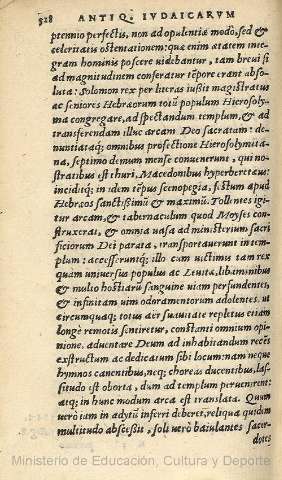 528 ANTIQ. IVDAICARVM
ptennio perfectis, non ad opulentiæ modo, sed &
celeritatis ostentationem: quæ enim ætatem inte
gram hominis poscere uidebantur, tam breui si
ad magnitudinem conferatur tēpore erant abso
luta: Solomon rex per literas iußit magistratus
ac seniores Hebræorum totū populum Hierosoly
ma congregare, ad spectandum templum, & ad
transferendam illuc arcam Deo sacratam: de-
nuntiataq́; omnibus profectione Hierosolymita-
na, septimo demum mense conuenerunt, qui no-
stratibus est thuri, Macedonibus hyperberetæus:
inciditq́; in idem tēpus scenopegia, festum apud
Hebræos sanctißimū & maximū. Tollentes igi
tur arcam, & tabernaculum quod Moyses con
struxerat, & omnia uasa ad ministerium sacri
ficiorum Dei parata, transportauerunt in tem-
plum: accesseruntq́; illo cum uictimis tam rex
quàm uniuersus populus ac Leuitæ, libaminibus
& multo hostiarū sanguine uiam perfundentes,
& infinitam uim odoramentorum adolentes, ut
circumquaq; totus aër suauitate repletus etiam
longè remotis sentiretur, constanti omnium opi-
nione, aduentare Deum ad inhabitandum recēs
exstructum ac dedicatum sibi locum: nam neque
hymnos canentibus, neq; choreas ducentibus, las-
situdo est oborta, dum ad templum peruenirent:
atq; in hunc modum arca est translata. Quum
uerò iam in adytū inferri deberet, reliqua quidem
multitudo abscessit, soli uerò baiulantes sacer-
dotes
Ministerio de Educación, Cultura y Deporte